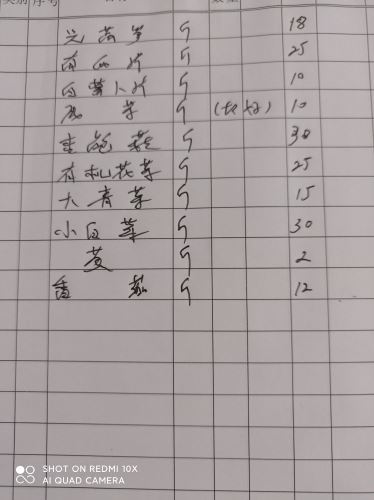 类别 序号
光莴笋 斤 18
南瓜片 斤 25
白萝卜片 斤 10
斤 10
杏鲍菇 斤 30
有机花菜 斤 25
大青菜 斤 15
小白菜 斤 30
斤 2
香 斤 12
SHOT ON REDMI 10X
AI QUAD CAMERA